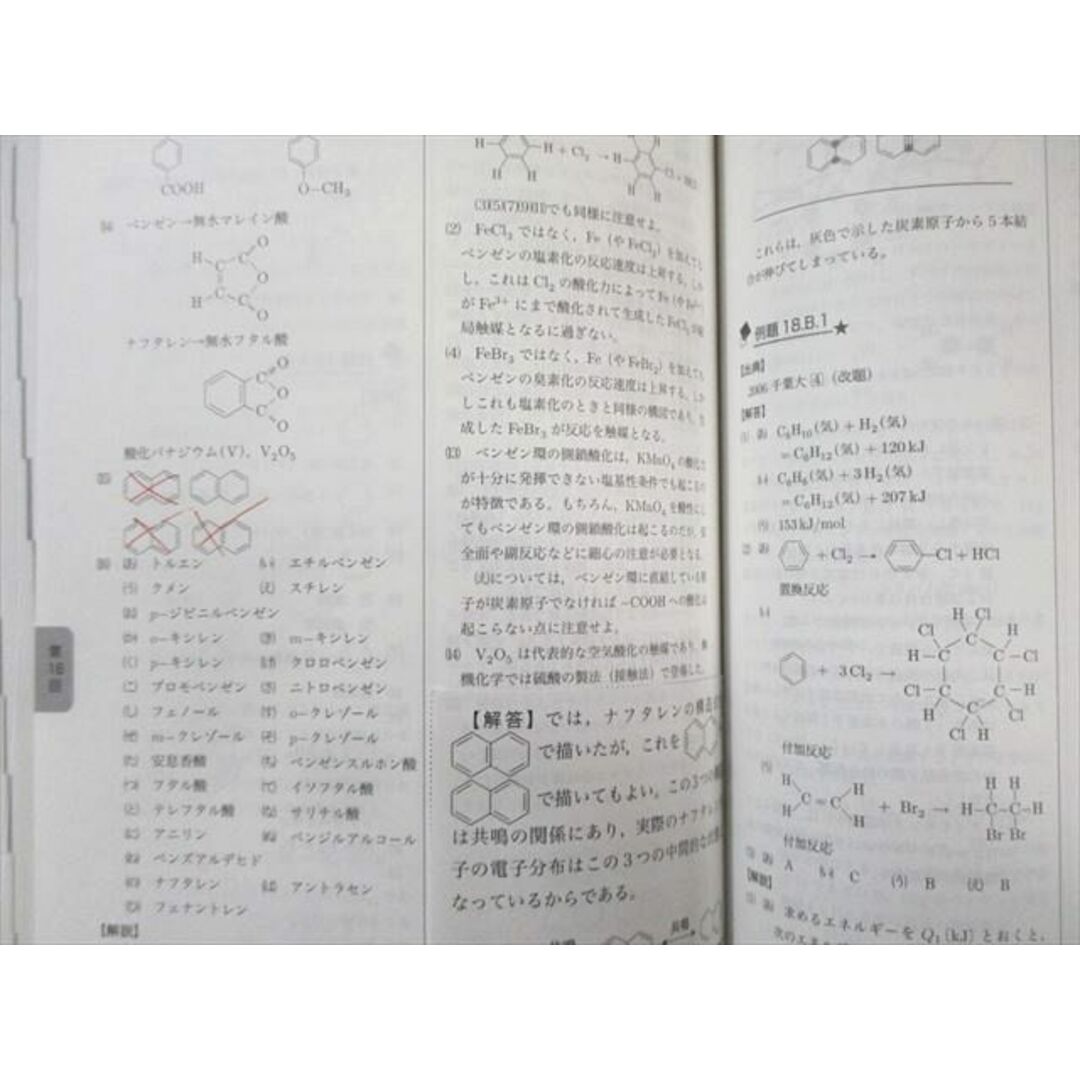 COOH
O-CH3
ベンゼン→無水マレイン酸
ナフタレン→無水フタル酸
酸化バナジウム(V), V2O5
トルエン
エチルベンゼン
(う) クメン
(え) スチレン
p-ジビニルベンゼン
o-キシレン
m-キシレン
p-キシレン
クロロベンゼン
ブロモベンゼン
ニトロベンゼン
フェノール
o-クレゾール
m-クレゾール
p-クレゾール
安息香酸
ベンゼンスルホン酸
フタル酸
イソフタル酸
テレフタル酸
サリチル酸
アニリン
ベンジルアルコール
ベンズアルデヒド
ナフタレン
アントラセン
フェナントレン
【解説】
第
18
回
でも同様に注意せよ。
(2) FeCl3 ではなく, Fe (や FeCl2) を加えても
ベンゼンの塩素化の反応速度は上昇する。
し, これは Cl2 の酸化力によって Fe
が Fe3+ にまで酸化されて生成した FeCl3 が
局触媒となるに過ぎない。
(4) FeBr3 ではなく, Fe (や FeBr2) を加えても
ベンゼンの臭素化の反応速度は上昇する。
しこれも塩素化のときと同様の構図であり,
成した FeBr3 が反応を触媒となる。
(13) ベンゼン環の側鎖酸化は, KMnO4 の酸化
が十分に発揮できない塩基性条件でも起こる
が特徴である。もちろん, KMnO4 を酸性に
てもベンゼン環の側鎖酸化は起こるのだが,
全面や副反応などに細心の注意が必要となる。
については, ベンゼン環に直結している
子が炭素原子でなければ -COOH への酸化は
起こらない点に注意せよ。
(14) V2O5 は代表的な空気酸化の触媒であり,
機化学では硫酸の製法 (接触法) で登場した。
【解答】では, ナフタレンの構造
で描いたが, これを
で描いてもよい。この3つの
は共鳴の関係にあり, 実際のナフタレ
子の電子分布はこの3つの中間的な
なっているからである。
共鳴
これらは, 灰色で示した炭素原子から5本結
合が伸びてしまっている。
例題 18.B.1 ★
【出典】
2006 千葉大 4 (改題)
【解答】
C6H10(気) + H2(気)
= C6H12(気) + 120 kJ
C6H6(気) + 3H2(気)
= C6H12(気) + 207 kJ
(う) 153 kJ/mol
+ Cl2 → -Cl + HCl
置換反応
+ 3Cl2 →
付加反応
+ Br2 →
付加反応
A
C
(う) B
(え) B
【解説】
求めるエネルギーを Q1 (kJ) とおくと,